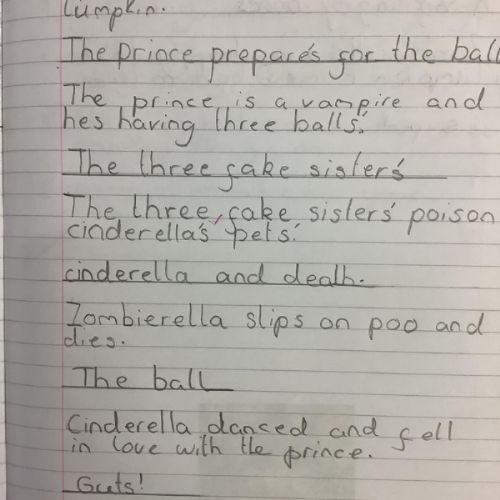 Lumpkin.
The prince prepare's for the ball
The prince is a vampire and
hes having three balls'.
The three fake sister's
The three, fake sisters' poison
cinderella's pets'.
cinderella and death.
Zombierella slips on poo and
dies.
The ball
Cinderella danced and fell
in love with the prince.
Guts!